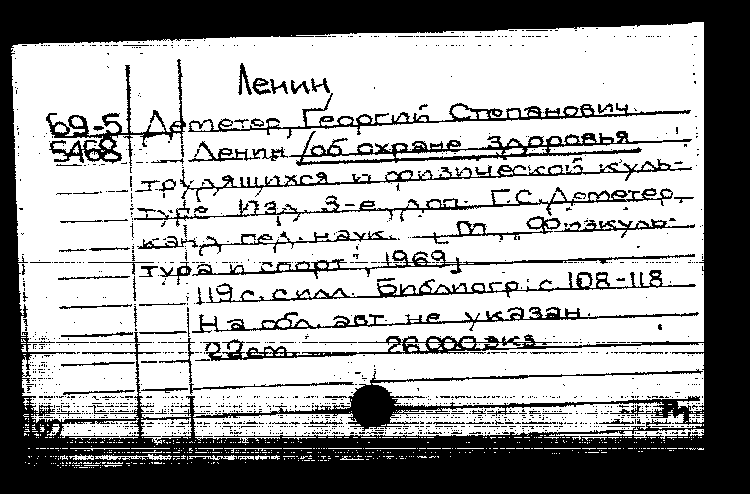 Ленин
69-5 Деметер, Георгий Степанович.
5468 Ленин /об охране здоровья
трудящихся и физической куль-
туре Изд. 3-е, доп. Г.С. Деметер,
канд. пед. наук. [М., „Физкуль-
тура и спорт", 1969]
119 с. с илл. Библиогр: с 108-118
На обл. авт. не указан.
22 см. 28 000 экз.